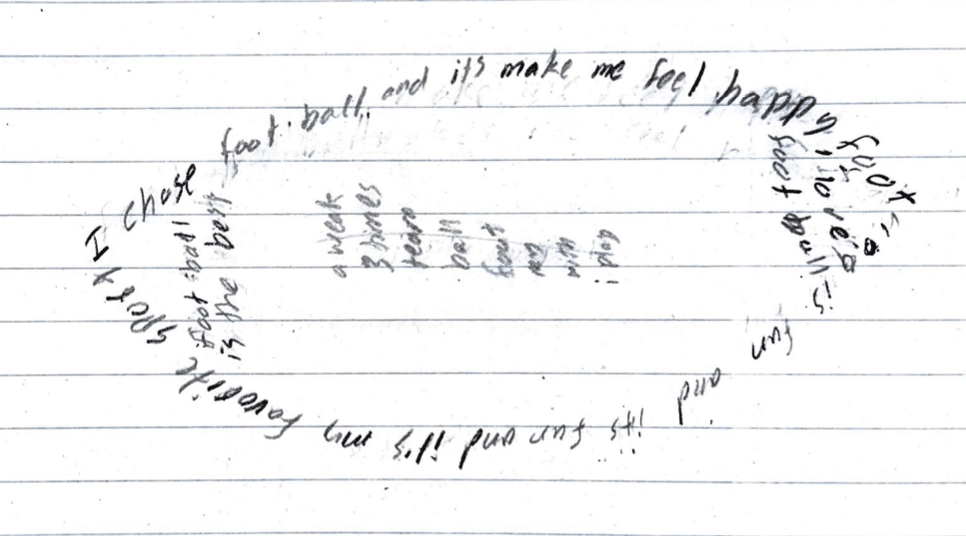 I chose foot.ball, and its make me feel happy, i love
foot ball is
fun
and
its fun and it's my favorite sport
foot ball
is the best
i play
with
my
foot
ball
team
3 times
a weak